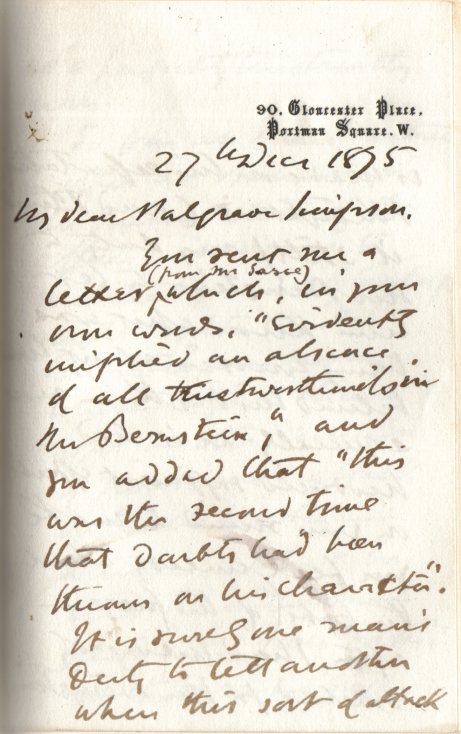 90, Gloucester Place,
Portman Square. W.
27th Dec 1875
My dear Palgrave Simpson,
You sent me a
(from Mr
letter which, in your
own words, "evidently
implied an absence
of all trustworthiness in
Mr Bernstein," and
you added that "this
was the second time
that doubts had been
thrown on his character".
It is surely one man's
Duty to tell another
when this sort of attack